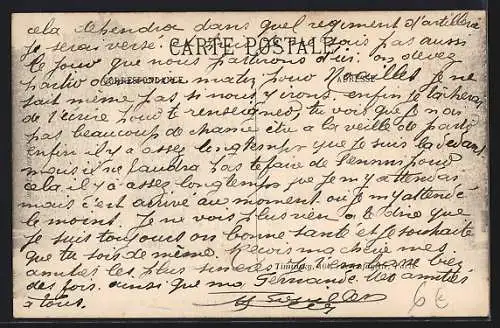 cela dependra dans quel regiment d'artillerie
je serai versé. je ne sais pas aussi
CARTE POSTALE
le jour que nous partirons d'ici. on devez
partir demain matin pour Versailles je ne
CORRESPONDANCE ADRESSE
sait même pas si nous y irons. enfin je tacherai
de t'ecrire pour te renseigner, tu vois que je n'ai
pas beaucoup de chance être a la veille de partir
enfin il y a assez longtemps que je suis la devant
mais il ne faudra pas te faire de l'ennui pour
cela il y a assez longtemps que je m'y attendais
mais c'est arrivé au moment ou je m'y attendé
le moint. Je ne vois plus rien a te dire que
je suis toujours en bonne santé et je souhaite
que tu sois de même. Reçois ma chère mes
amitiés les plus sincères et t'embrasse bien
des fois. ainsi que ma Fernande. Mes amitiés
a tous.
6t